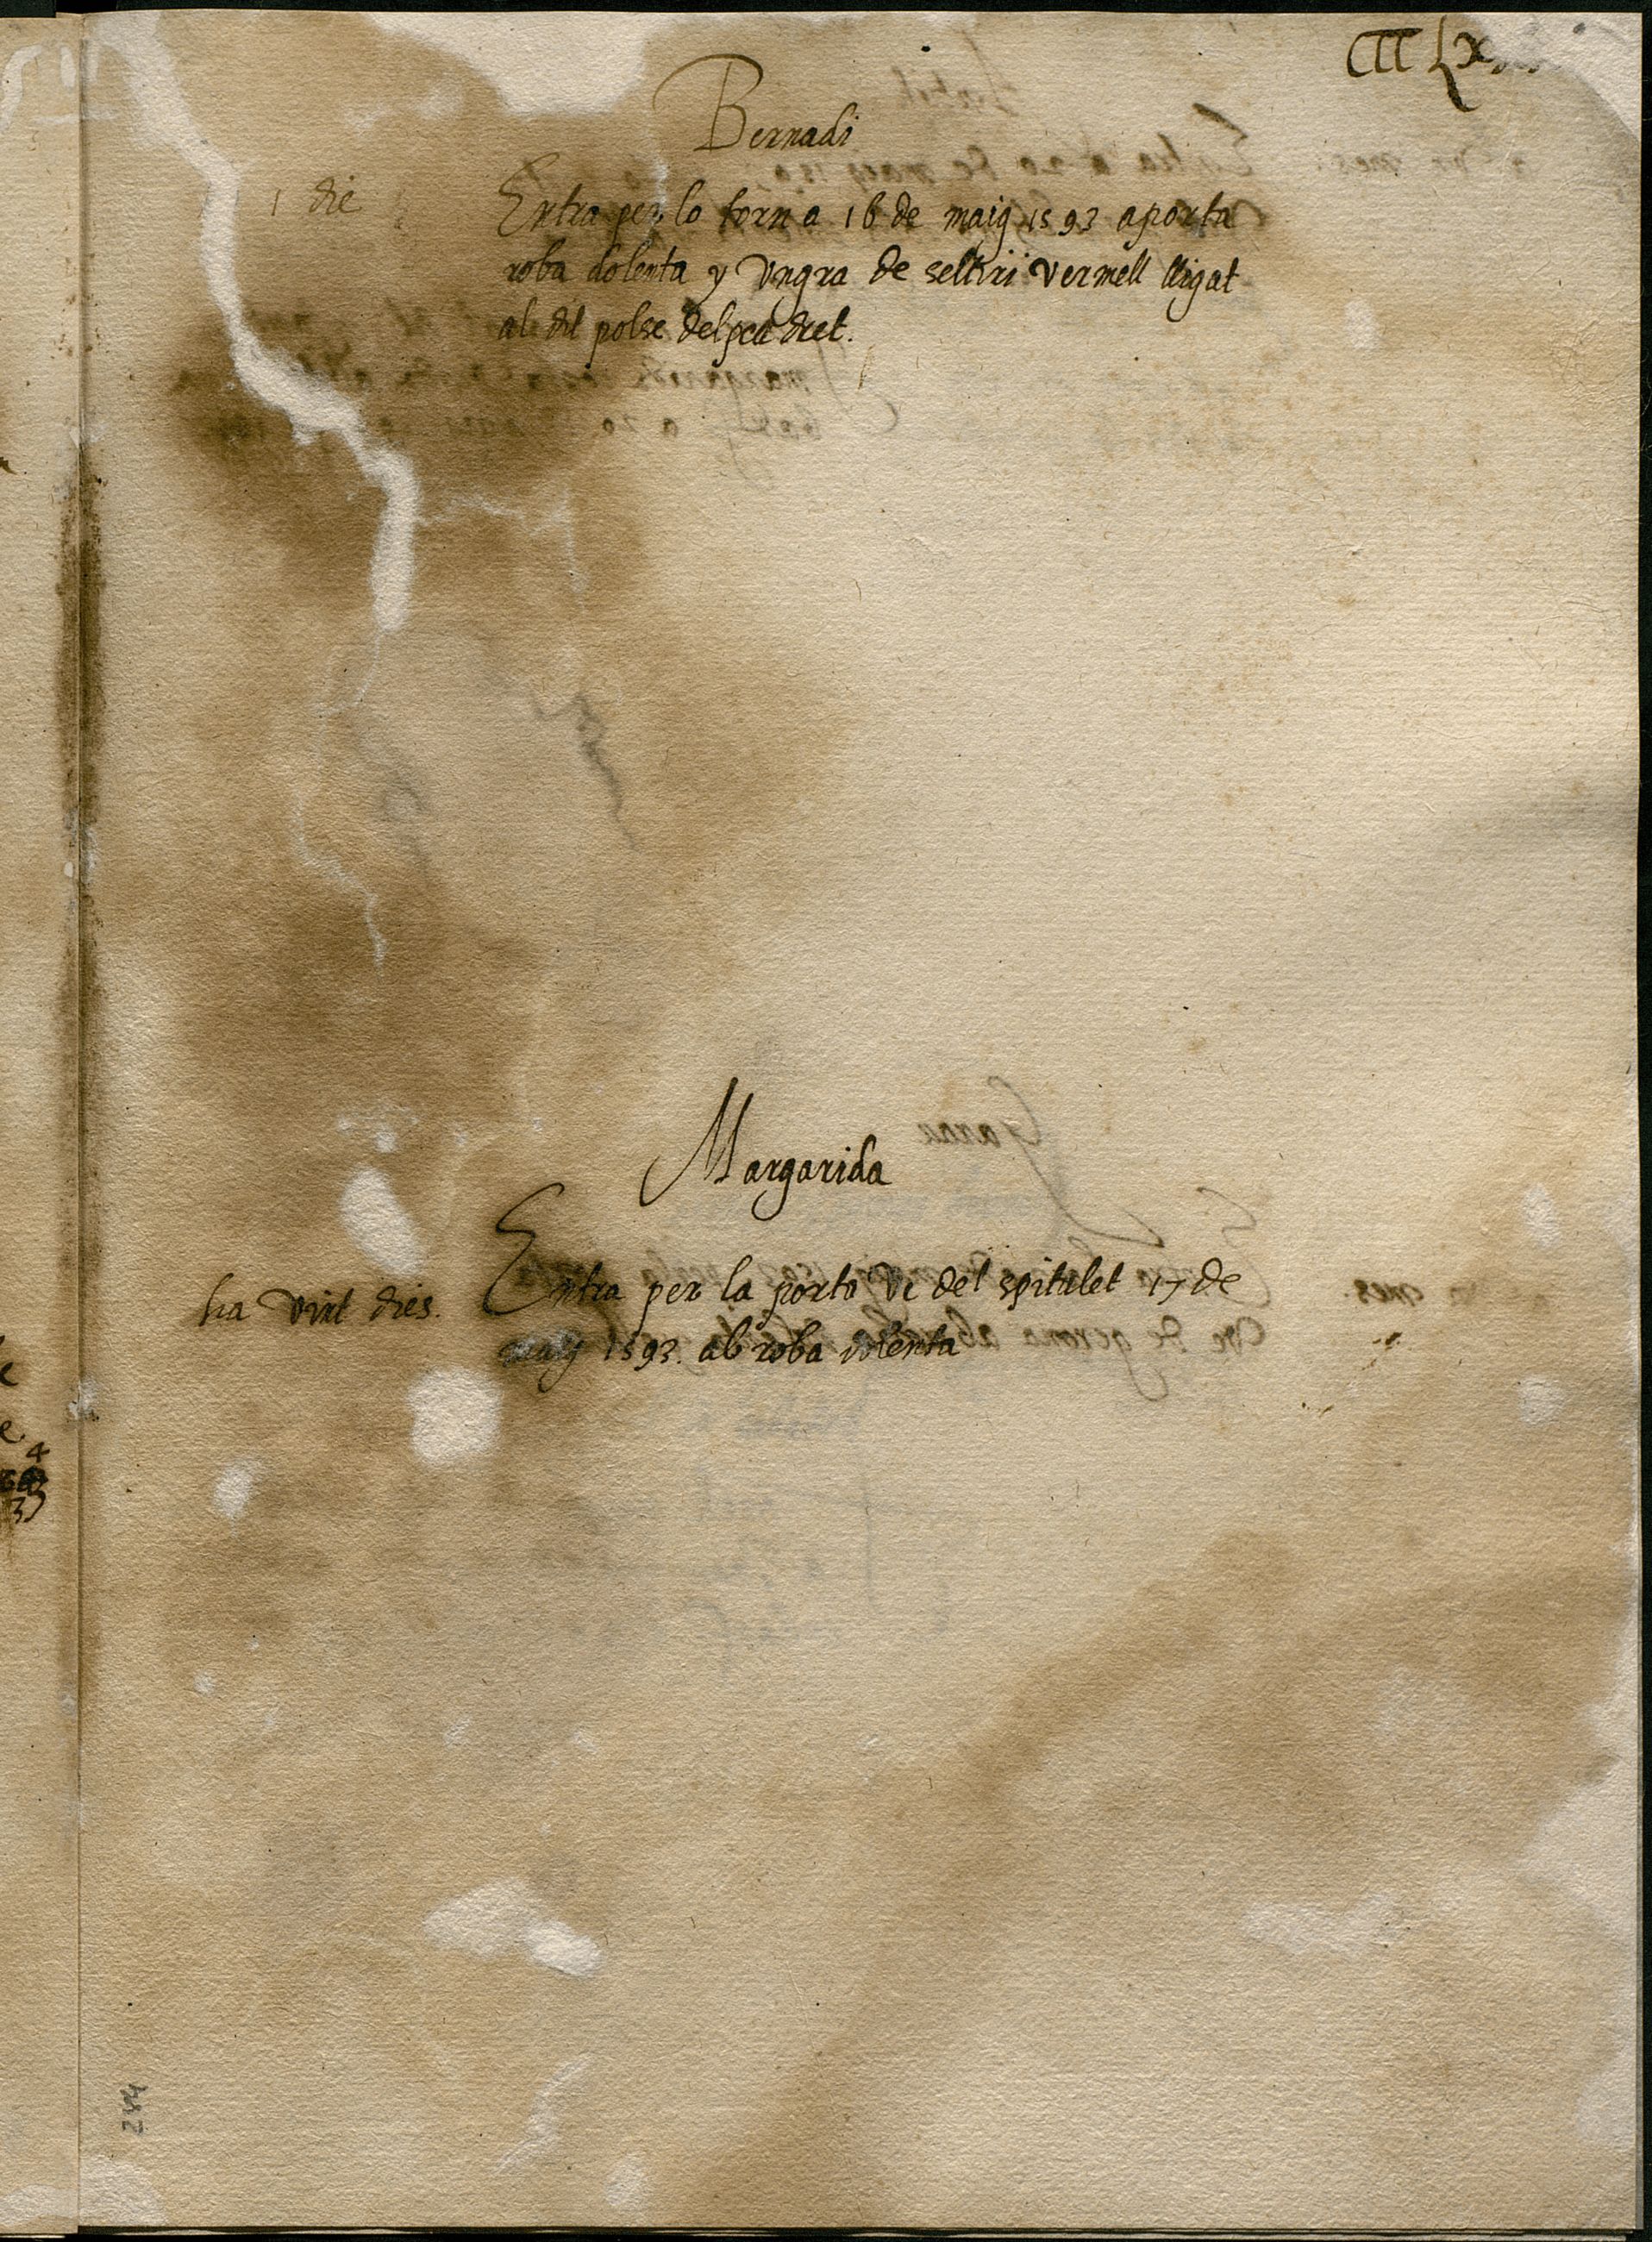 Bernadi
1 die
Entra per lo torn a 16 de maig 1593 aporta
roba dolenta y vngra de vermell lligat
al dit polse del peu dret.
Margarida
ha vint dies.
Entra per la porta ve del spitalet 17 de
maig 1593. ab roba dolenta
244